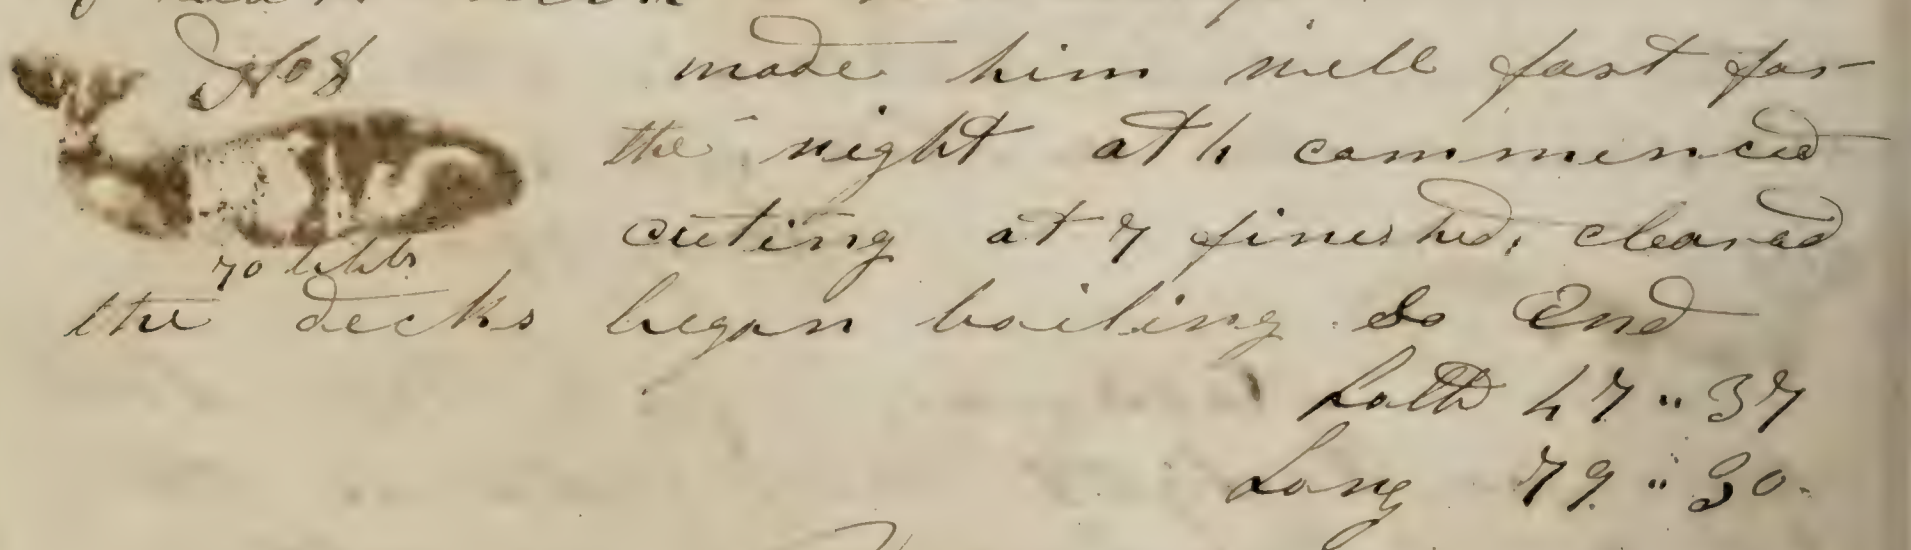 No 8
made him well fast for
the night at 4 commenced
cuting at 7 finished, cleared
70 bbls
the decks began boiling so End
Latd 47 " 37
Long 79 " 30